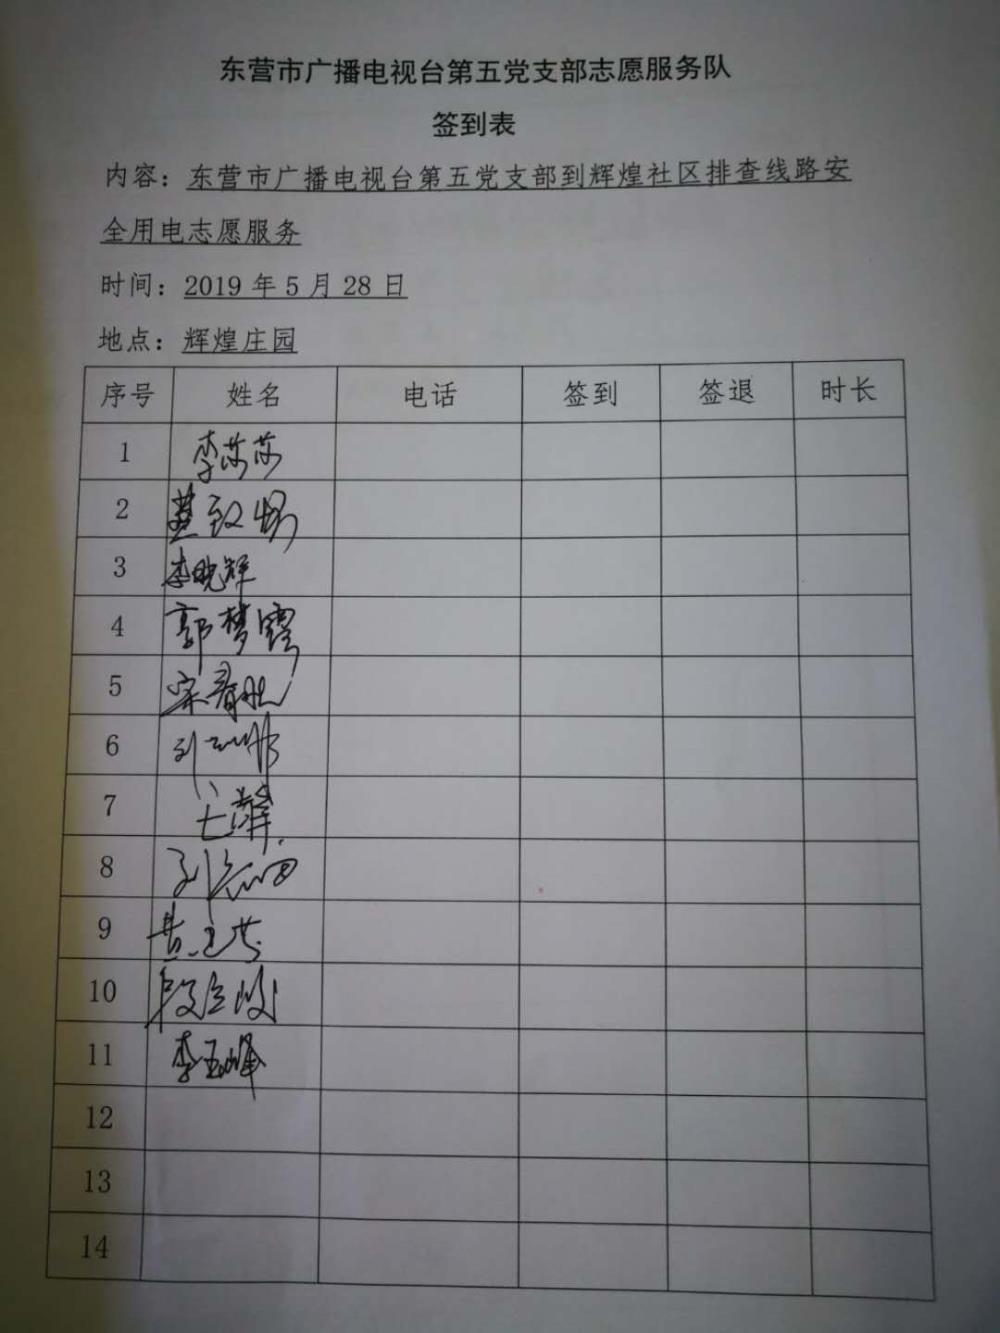 东营市广播电视台第五党支部志愿服务队
签到表
内容：东营市广播电视台第五党支部到辉煌社区排查线路安
全用电志愿服务
时间：2019 年 5 月 28 日
地点：辉煌庄园
序号 姓名 电话 签到 签退 时长
1 李莎莎
2
3 李晓辉
4 郭梦霞
5
6
7
8
9
10
11 李玉峰
12
13
14